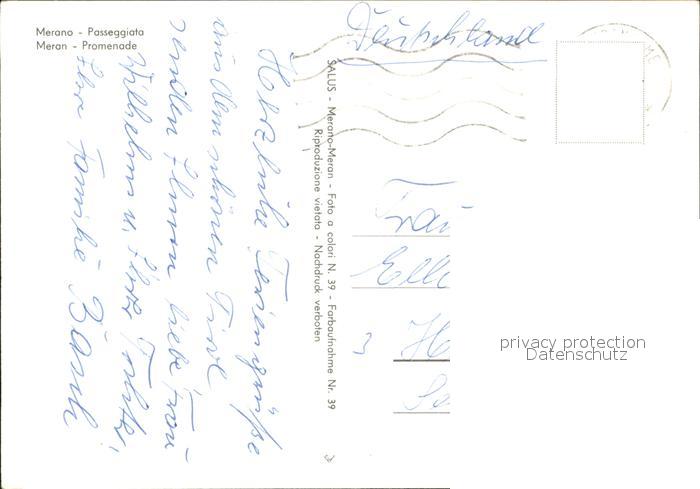 Merano - Passeggiata
Meran - Promenade
Herzliche Feriengrüße
aus dem schönen Tirol
senden Ihnen liebe Frau
Wilhelm u. Ihrer
Ihre Familie
SALUS - Merano-Meran - Foto a colori N. 39 - Farbaufnahme Nr. 39
Riproduzione vietata - Nachdruck verboten
Deutschland
Frau
Elle
3 H
privacy protection
Datenschutz